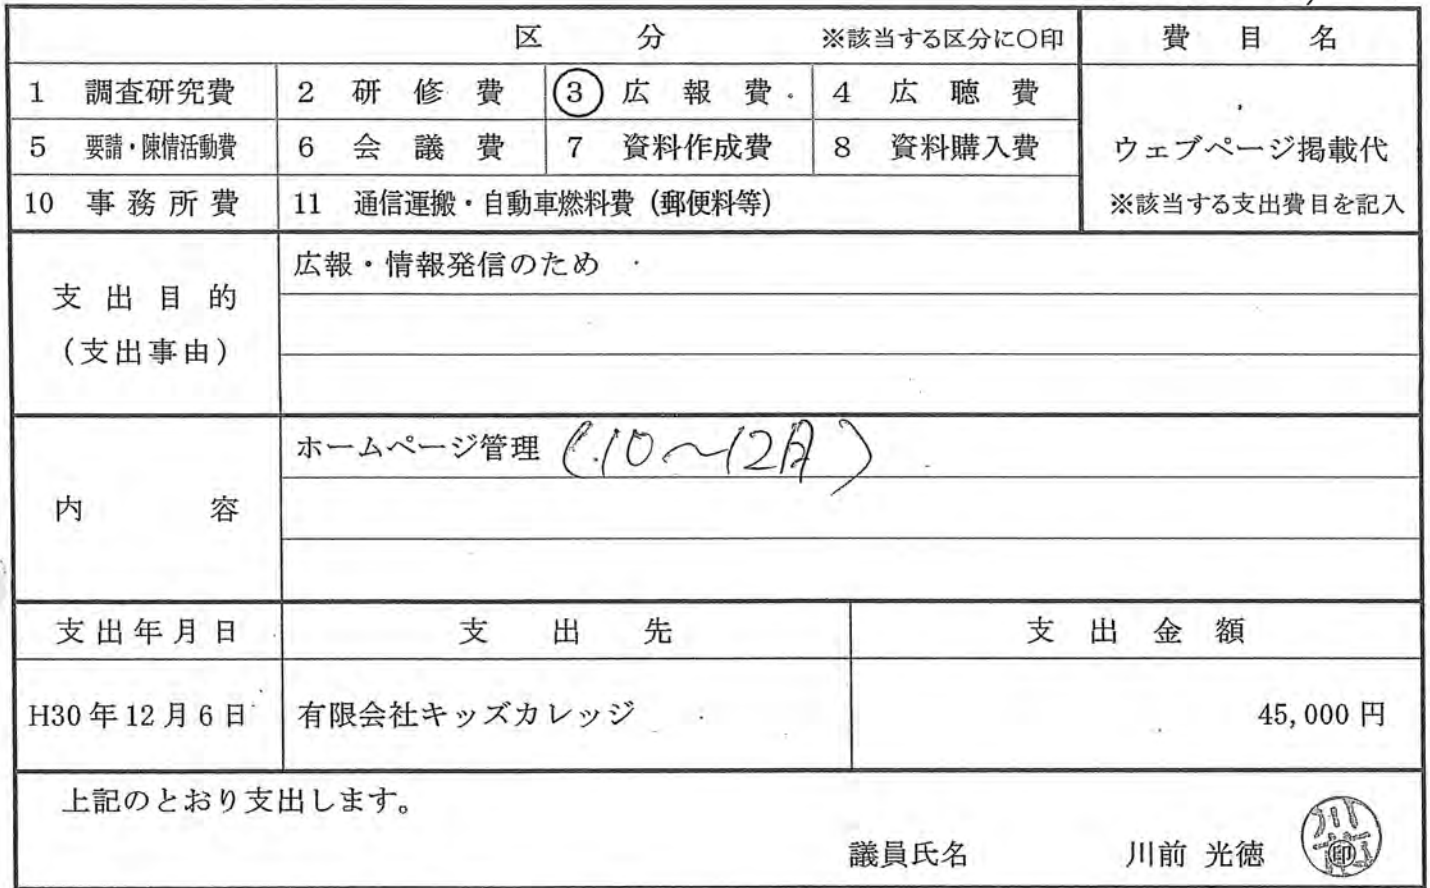 区 分 ※該当する区分に○印 費 目 名
1 調査研究費 2 研 修 費 ③ 広 報 費 4 広 聴 費
5 要請・陳情活動費 6 会 議 費 7 資料作成費 8 資料購入費 ウェブページ掲載代
10 事 務 所 費 11 通信運搬・自動車燃料費（郵便料等） ※該当する支出費目を記入
支 出 目 的
（支出事由）
広報・情報発信のため
内 容
ホームページ管理 (10～12月)
支 出 年 月 日 支 出 先 支 出 金 額
H30 年 12 月 6 日 有限会社キッズカレッジ 45,000 円
上記のとおり支出します。
議員氏名 川前 光徳 川前 印